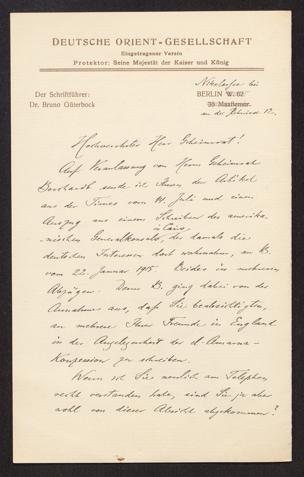 DEUTSCHE ORIENT-GESELLSCHAFT
Eingetragener Verein
Protektor: Seine Majestät der Kaiser und König
Der Schriftführer:
Dr. Bruno Güterbock
Nikolassee bei
BERLIN W. 62
an der Rehwiese 12.
Hochverehrter Herr Geheimrat!
Auf Veranlassung von Herrn Geheimrat
Borchardt sende ich Ihnen den Artikel
aus der Times vom 14. Juli und einen
Auszug aus einem Schreiben des amerika-
nischen Generalkonsuls, der damals die
in Cairo
deutschen Interessen dort wahrnahm, an B.
vom 22. Januar 1915. Beides in mehreren
Abzügen. Denn B. ging dabei von der
Annahme aus, daß Sie beabsichtigten,
an mehrere Ihrer Freunde in England
in der Angelegenheit der el-Amarna-
Konzession zu schreiben.
Wenn ich Sie neulich am Telephon
recht verstanden habe, sind Sie ja aber
wohl von dieser Absicht abgekommen?